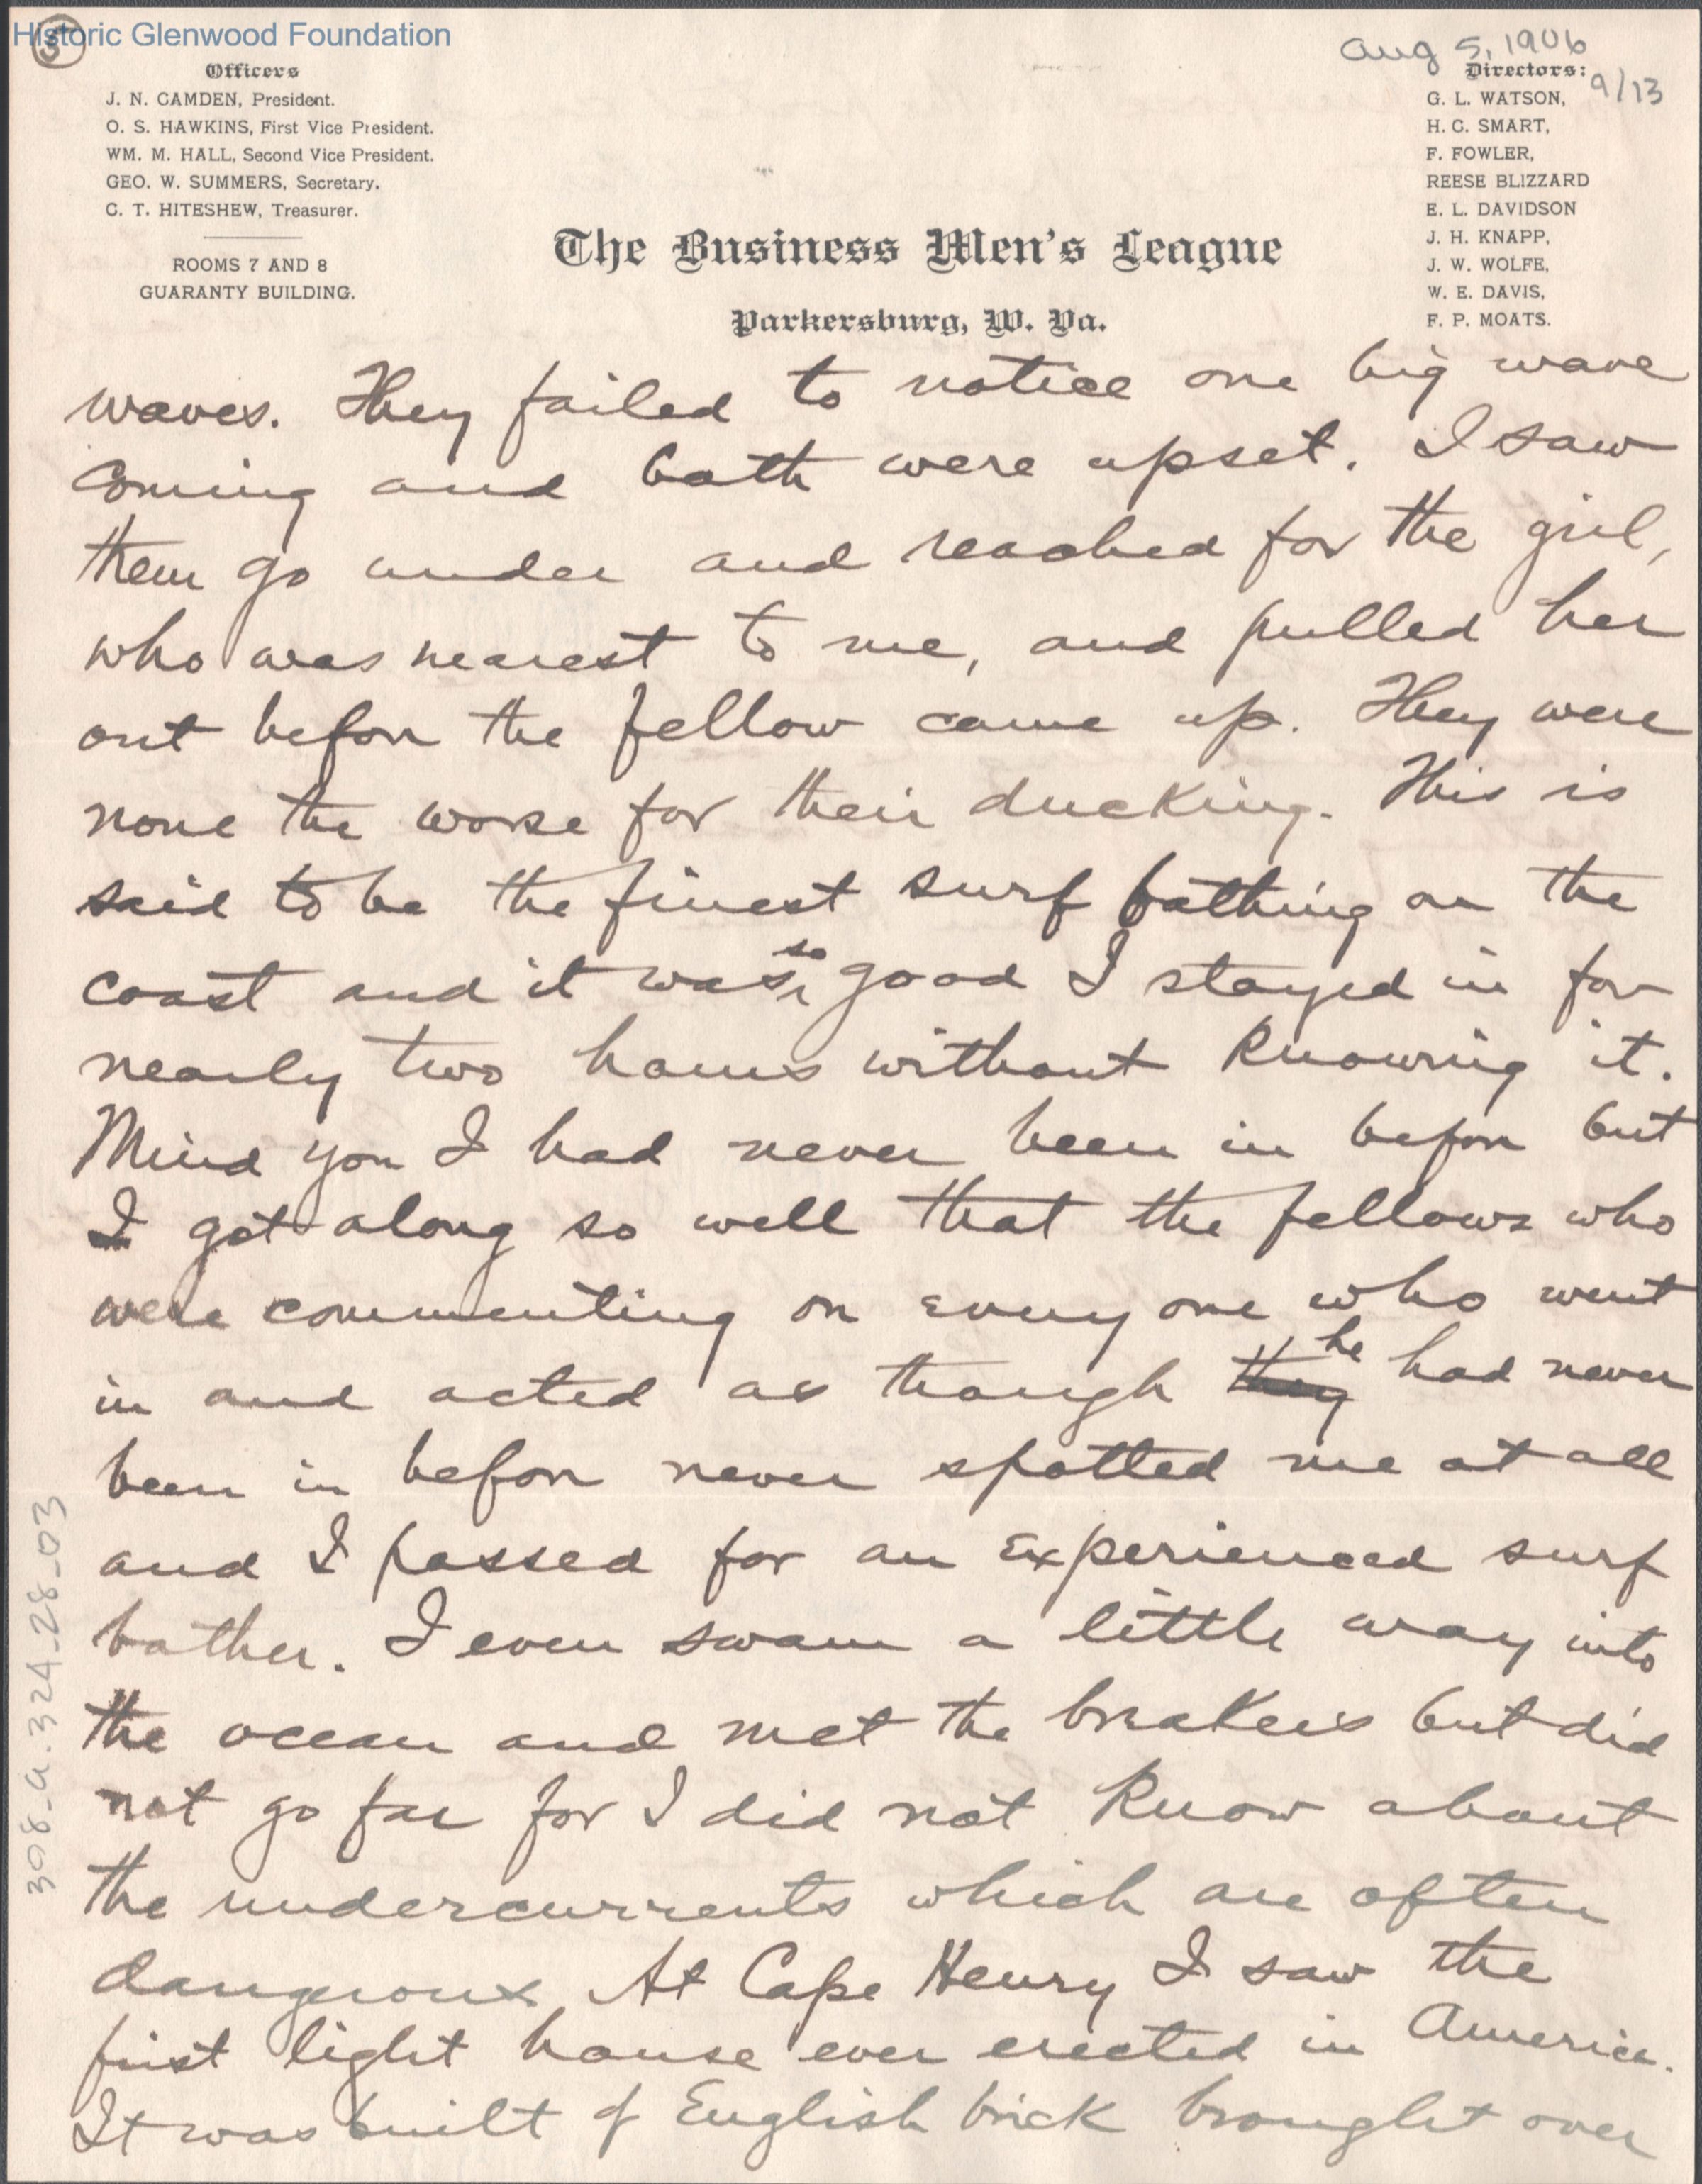 Historic Glenwood Foundation
Aug 5, 1906
9/13
Officers
J. N. CAMDEN, President.
O. S. HAWKINS, First Vice President.
WM. M. HALL, Second Vice President.
GEO. W. SUMMERS, Secretary.
C. T. HITESHEW, Treasurer.
ROOMS 7 AND 8
GUARANTY BUILDING.
The Business Men's League
Parkersburg, W. Va.
Directors:
G. L. WATSON,
H. C. SMART,
F. FOWLER,
REESE BLIZZARD
E. L. DAVIDSON
J. H. KNAPP,
J. W. WOLFE,
W. E. DAVIS,
F. P. MOATS.
waves. They failed to notice one big wave
coming and both were upset. I saw
them go under and reached for the girl,
who was nearest to me, and pulled her
out before the fellow came up. They were
none the worse for their ducking. This is
said to be the finest surf bathing on the
coast and it was so good I stayed in for
nearly two hours without knowing it.
Mind you I had never been in before but
I got along so well that the fellows who
were commenting on every one who went
in and acted as though they he had never
been in before never spotted me at all
and I passed for an experienced surf
bather. I even swam a little way into
the ocean and met the breakers but did
not go far for I did not know about
the undercurrents which are often
dangerous. At Cape Henry I saw the
first light house ever erected in America.
It was built of English brick brought over
398_a.324_28_03